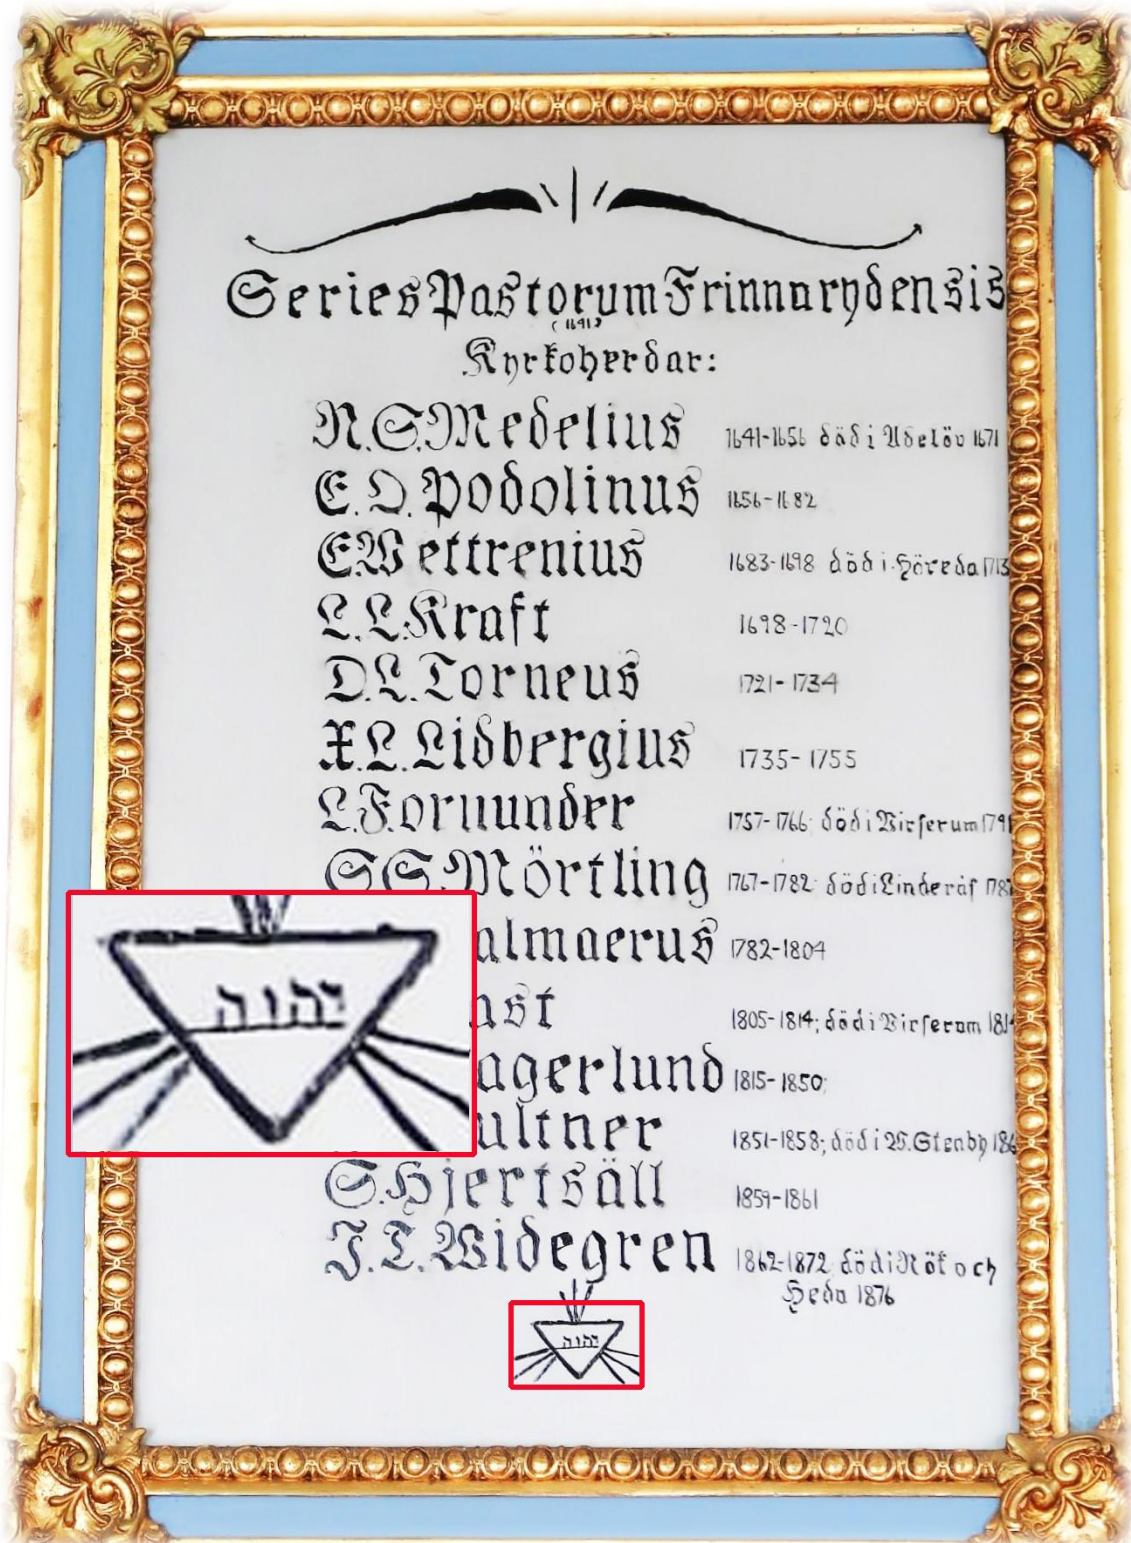 Series Pastorum Frinnarydensis
(1641)
Kyrkoherdar:
N.S.Medelius 1641-1656 död i Adelöv 1671
E.O.Podolinus 1656-1682
E.Wettrenius 1683-1698 död i Höreda 1713
L.L.Kraft 1698-1720
D.L.Torneus 1721-1734
X.L.Lidbergius 1735-1755
L.Fornander 1757-1766; död i Virserum 179
S.S.Mörtling 1767-1782; död i Linderås 178
almaerus 1782-1804
ast 1805-1814; död i Virserum 181
agerlund 1815-1850;
ultner 1851-1858; död i V.Stenby 186
S.Hjertsäll 1859-1861
J.T.Widegren 1862-1872 död i Rök och
Heda 1876
יהוה
יהוה